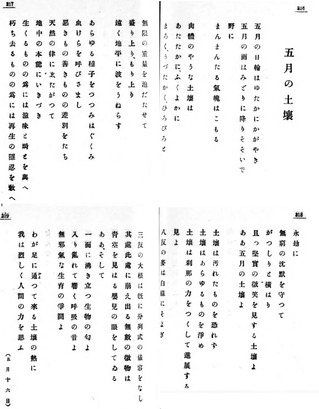 五月の土壤
五月の日輪はゆたかにかがやき
五月の雨はみどりに降りそそいで
野に
まんまんたる氣魄はこもる
肉體のやうな土壤は
あたたかに、ふくよかに
まろく、うづたかく、ひろびろと
307
無限の重量を泡だたせて
盛り上り、もり上り
遠く地平に波をうねらす
あらゆる種子をつつみはぐくみ
虫けらを呼びさまし
惡きもの善きものの差別をたち
天然の律にしたがつて
地中の本能にいきづき
生くるものの爲には滋味と時とを與へ
朽ち去るものの爲には再生の隱忍を敎へ
308
永劫に
無窮の沈默を守つて
がつしりと横はり
且つ堅實の微笑を見する土壤よ
ああ、五月の土壤よ
土壤は汚れたものを恐れず
土壤はあらゆるものを淨め
土壤は刹那の力をつくして進展する
見よ
八反の麥は白綠にそよぎ
309
三反の大根は既に分列式の儀容をなし
其處此處に萌え出る無數の微物は
青空を見はる嬰兒の眼をしてゐる
ああ、そして
一面に沸き立つ生物の匂よ
入り亂れて響く呼吸の音よ
無邪氣な生育の爭鬪よ
わが足に通つて來る土壤の熱に
我は烈しく人間の力を思ふ
(五月十六日)